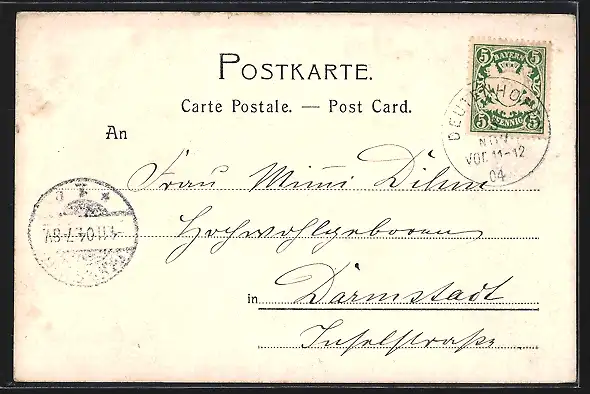 POSTKARTE.
Carte Postale. — Post Card.
An
Frau Mimi Dihm
Hochwohlgeboren
in Darmstadt
Inselstraße
5 BAYERN 5
5 PFENNIG 5
NOV.
VOR. 11-12
04